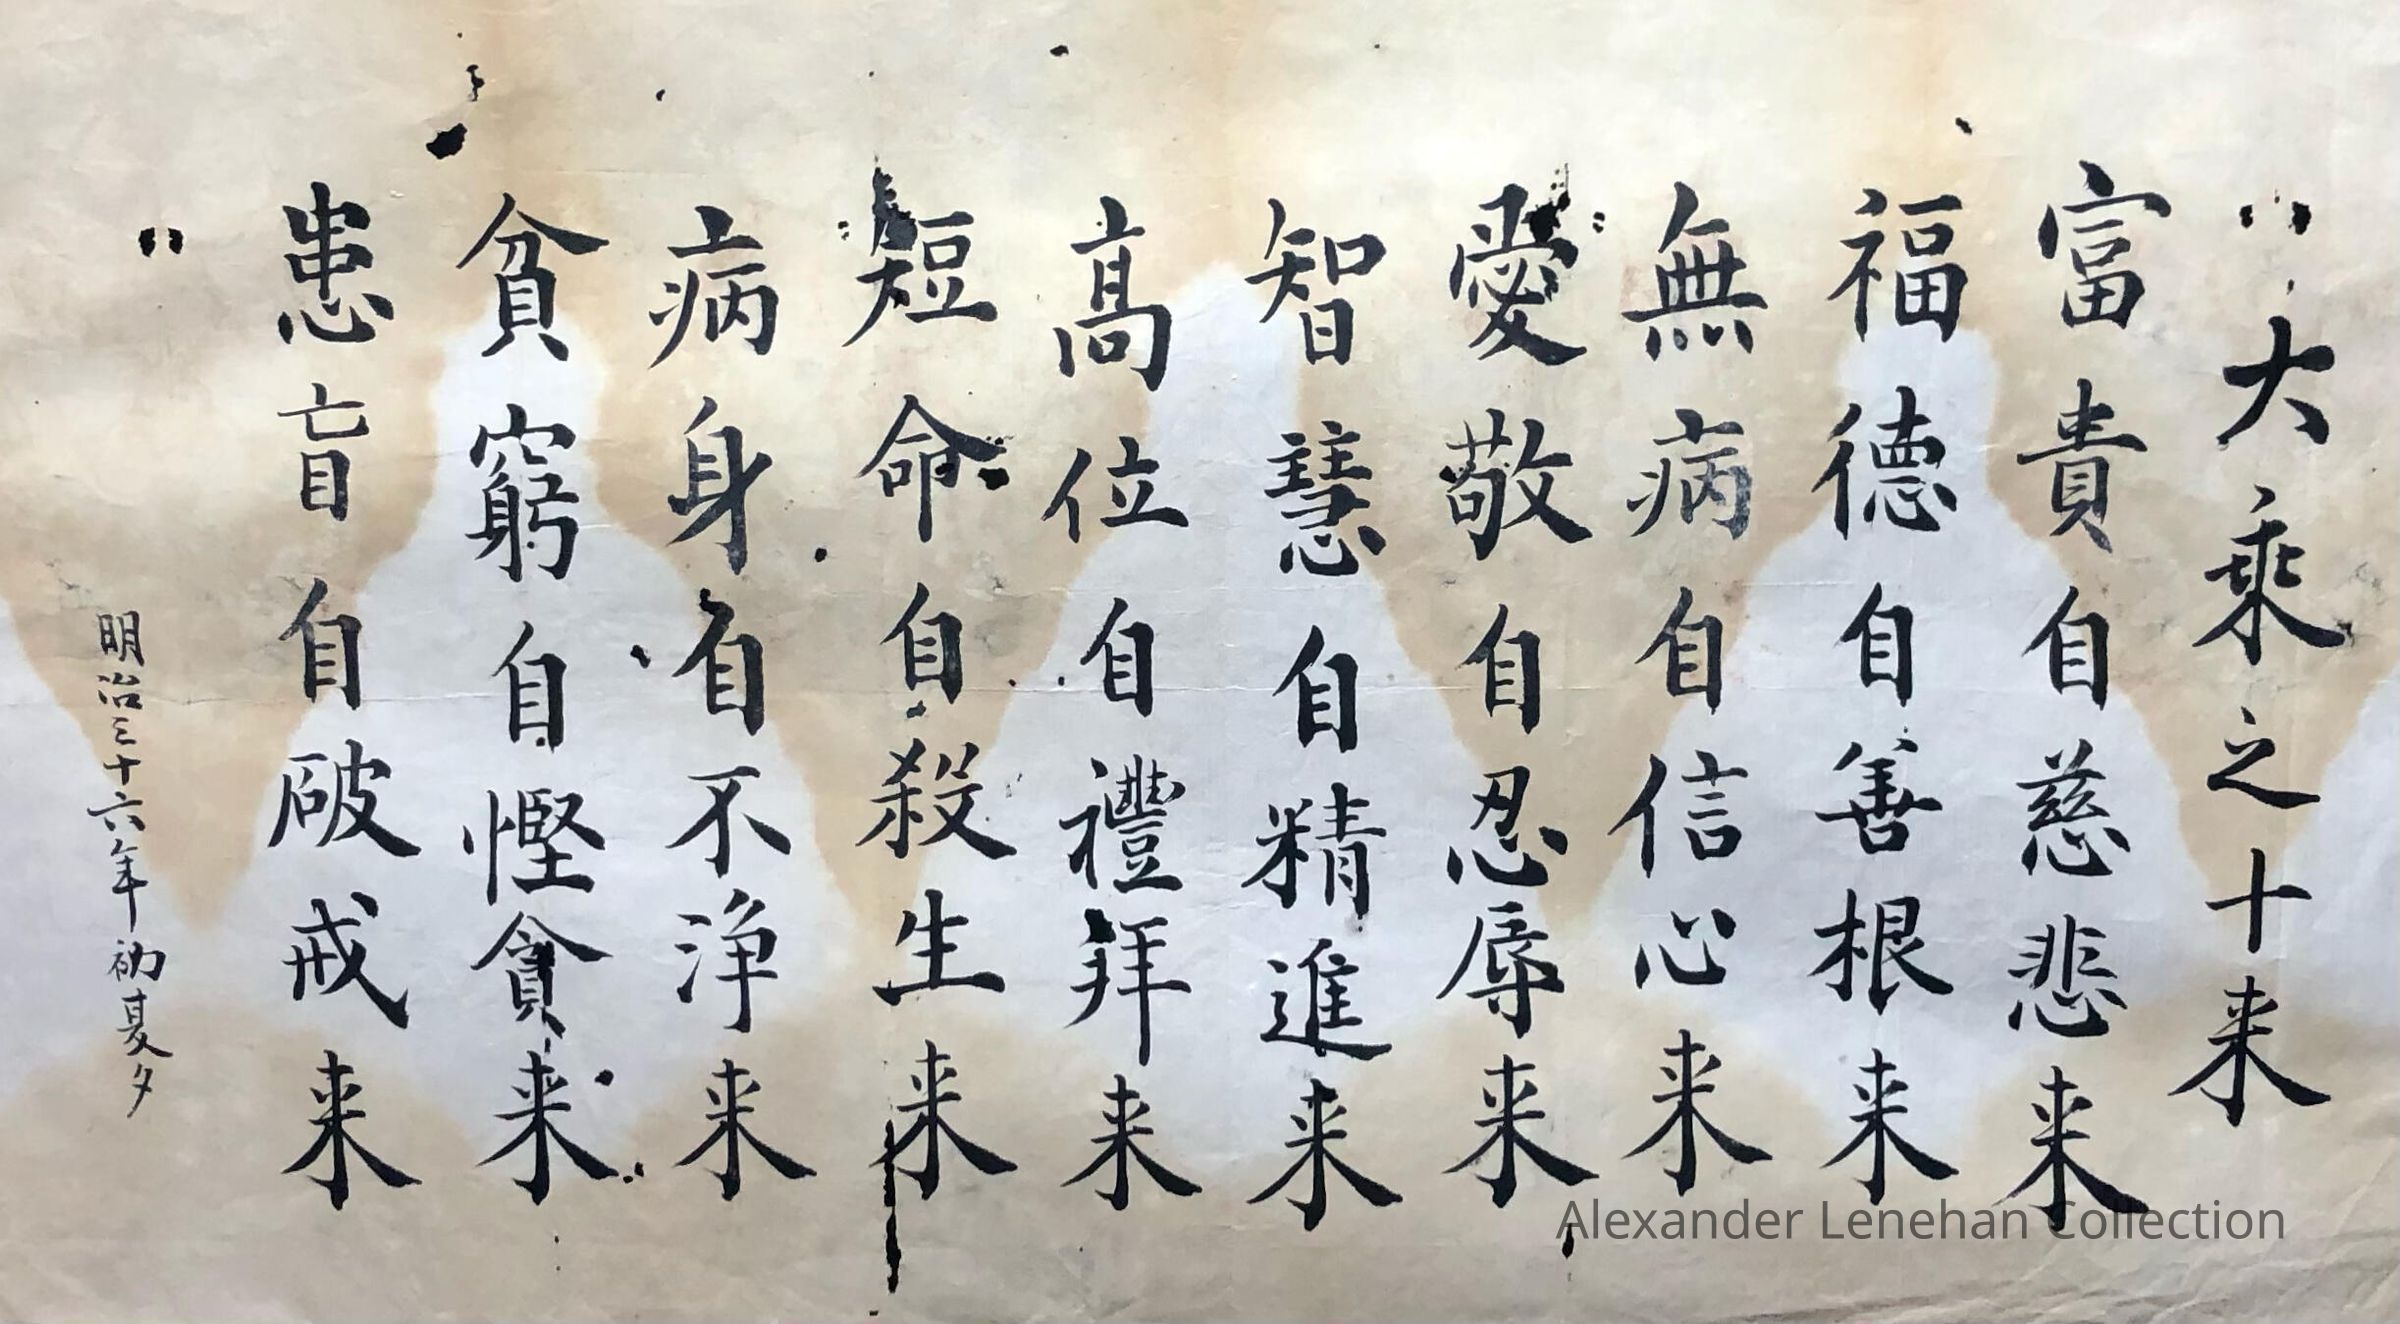 大乘之十来
富貴自慈悲来
福德自善根来
無病自信心来
愛敬自忍辱来
智慧自精進来
高位自禮拜来
短命自殺生来
病身自不浄来
貧窮自慳貪来
患盲自破戒来
明治三十六年初夏夕
Alexander Lenehan Collection